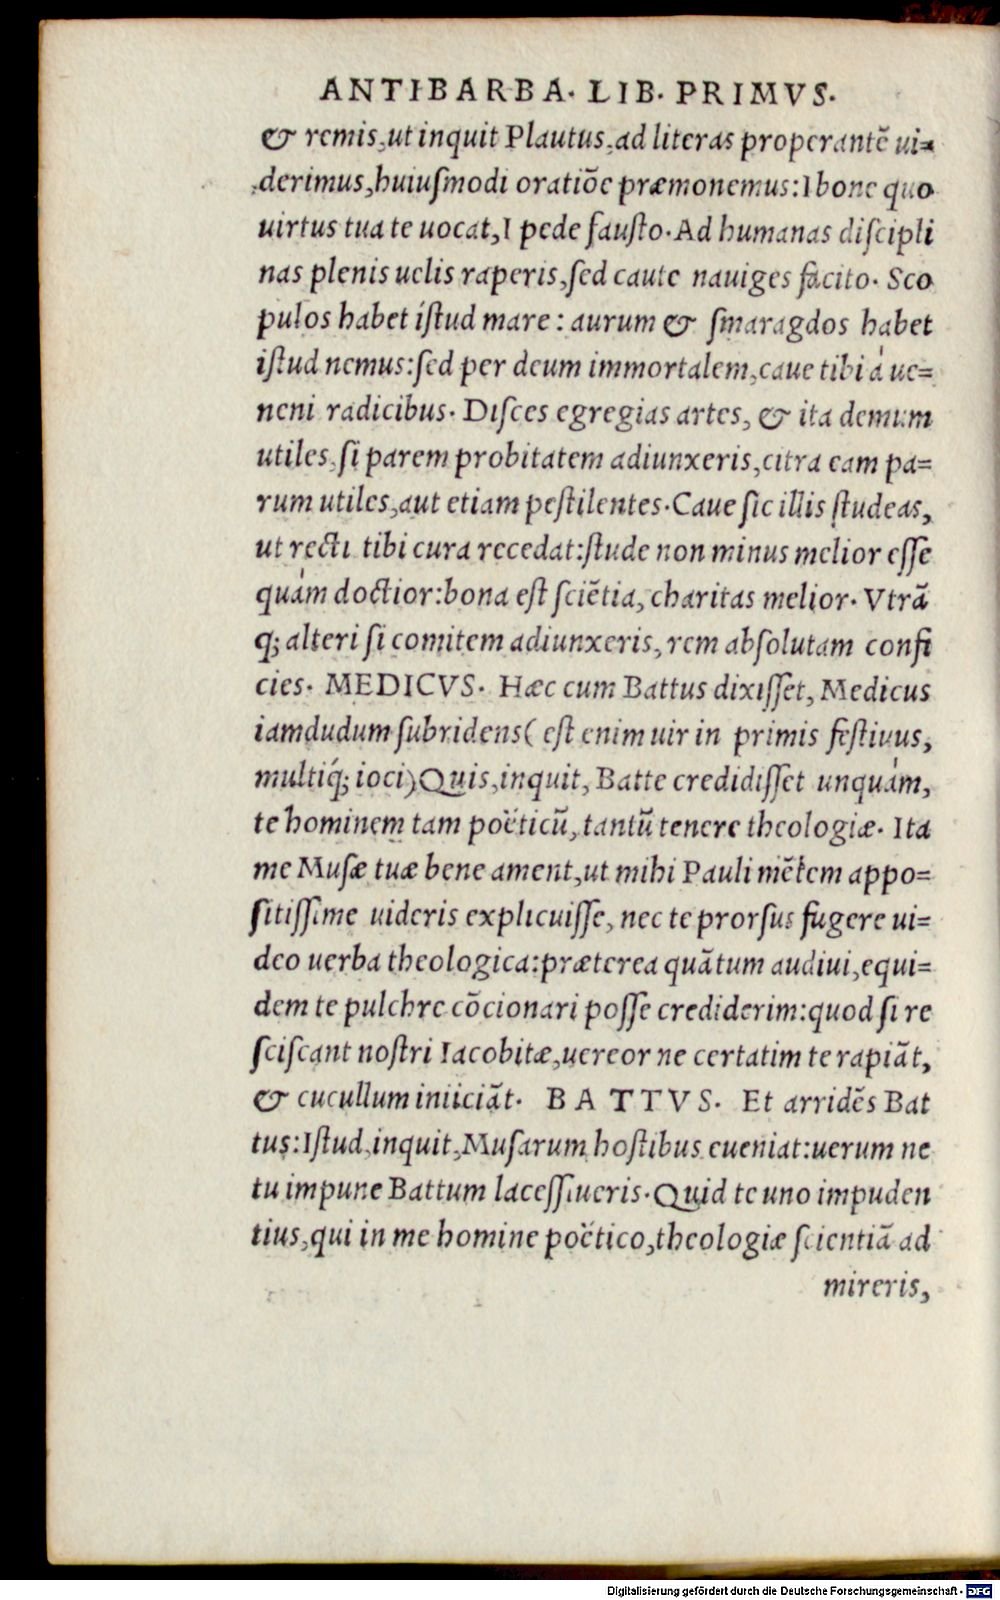 ANTIBARBA. LIB. PRIMVS.
& remis, ut inquit Plautus, ad literas properantē ui=
derimus, huiuſmodi oratiōe præmonemus: I bone quo
uirtus tua te uocat, I pede fauſto. Ad humanas diſcipli
nas plenis uelis raperis, ſed caute nauiges facito. Sco
pulos habet iſtud mare: aurum & ſmaragdos habet
iſtud nemus: ſed per deum immortalem, caue tibi á ue=
neni radicibus. Diſces egregias artes, & ita demum
utiles, ſi parem probitatem adiunxeris, citra eam pa=
rum utiles, aut etiam peſtilentes. Caue ſic illis ſtudeas,
ut recti tibi cura recedat: ſtude non minus melior eſſe
quám doctior: bona eſt ſciētia, charitas melior. Vtrā
q; alteri ſi comitem adiunxeris, rem abſolutam confi
cies. MEDICVS. Hæc cum Battus dixiſſet, Medicus
iamdudum ſubridens (eſt enim uir in primis feſtiuus,
multíq; ioci) Quis, inquit, Batte credidiſſet unquám,
te hominem tam poëticū, tantū tenere theologiæ. Ita
me Muſæ tuæ bene ament, ut mihi Pauli mētem appo=
ſitiſſime uideris explicuiſſe, nec te prorſus fugere ui=
deo uerba theologica: præterea quātum audiui, equi=
dem te pulchre cōcionari poſſe crediderim: quod ſi re
ſciſcant noſtri Iacobitæ, uereor ne certatim te rapiāt,
& cucullum iniiciāt. BATTVS. Et arridēs Bat
tus: Iſtud, inquit, Muſarum hoſtibus eueniat: uerum ne
tu impune Battum laceſſiueris. Quid te uno impuden
tius, qui in me homine poëtico, theologiæ ſcientiā ad
mireris,
Digitalisierung gefördert durch die Deutsche Forschungsgemeinschaft - DFG